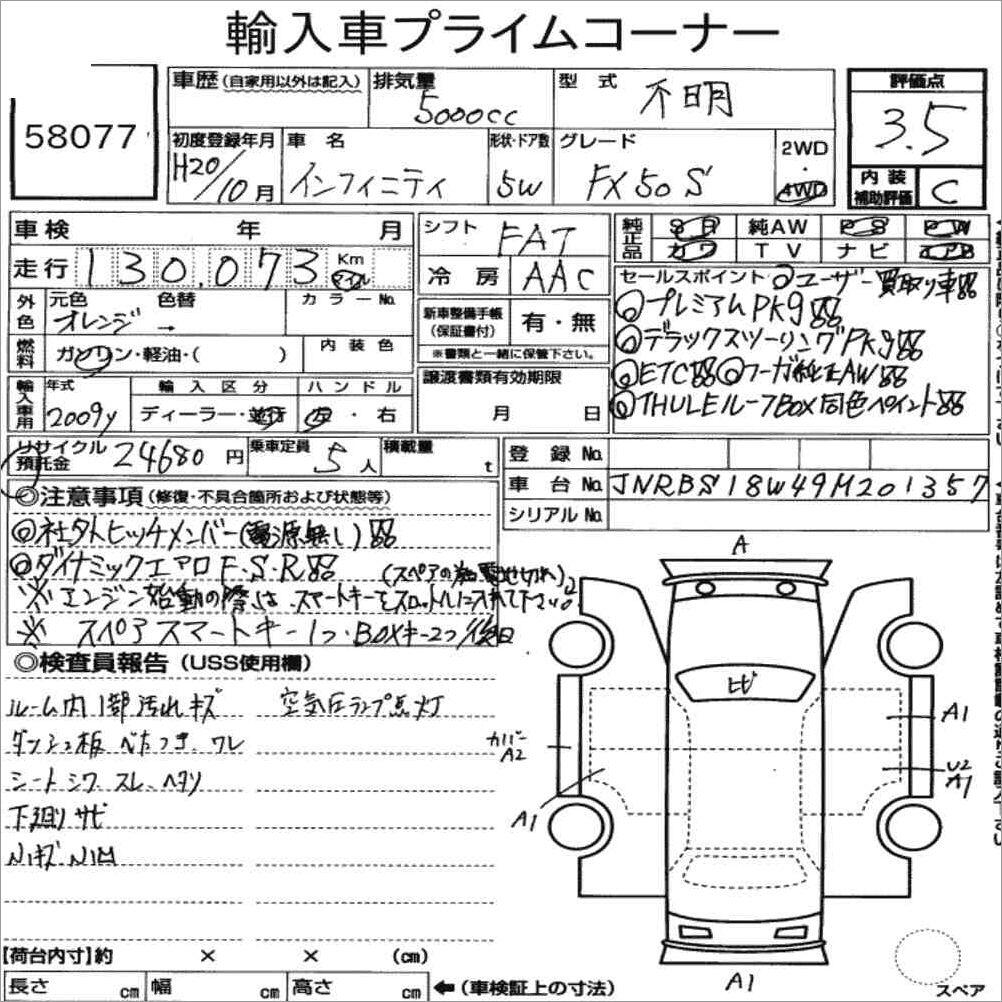 輸入車プライムコーナー
58077
車歴 (自家用以外は記入)
排気量 5000cc
型式 不明
評価点 3.5
初度登録年月 H20/10月
車名 インフィニティ
形状・ドア数 5W
グレード FX50S
2WD・4WD
内装補助評価 C
車検 年 月
シフト FAT
純正品 SR 純AW PS PW
カワ TV ナビ エアB
走行 130,073 Km マイル
冷房 AAC
セールスポイント ◎ユーザー買取り車
◎プレミアムPKg
◎デラックスツーリングPKg
◎ETC ◎フーガ純正AW
◎THULEルーフBOX同色ペイント
外色 元色 オレンジ 色替 → カラーNo.
新車整備手帳(保証書付) 有・無
※書類と一緒に保管下さい。
燃料 ガソリン・軽油・( ) 内装色
譲渡書類有効期限 月 日
輸入車用 年式 2009y 輸入区分 ディーラー・並行 ハンドル 左・右
リサイクル預託金 24680円 乗車定員 5人 積載量 t
登録No.
車台No. JNRBS18W49M201357
シリアルNo.
◎注意事項 (修復・不具合箇所および状態等)
◎社外ヒッチメンバー(電源無し)
◎ダイナミックエアロF・S・R
(スペアの為 電池切れ)
※ エンジン始動の際は、スマートキーをスロットルに入れて下さい。
※ スペアスマートキー1つ・BOXキー2つ/後日
◎検査員報告 (USS使用欄)
ルーム内1部汚れキズ 空気圧ランプ点灯
ダッシュ板 べたつき、ワレ
シートシワ スレ、ヘタリ
下廻りサビ
A
ヒビ
A1
カバーA2
U2
A1
A1
A1
スペア
【荷台内寸】約 × × (cm)
長さ cm 幅 cm 高さ cm ←(車検証上の寸法)